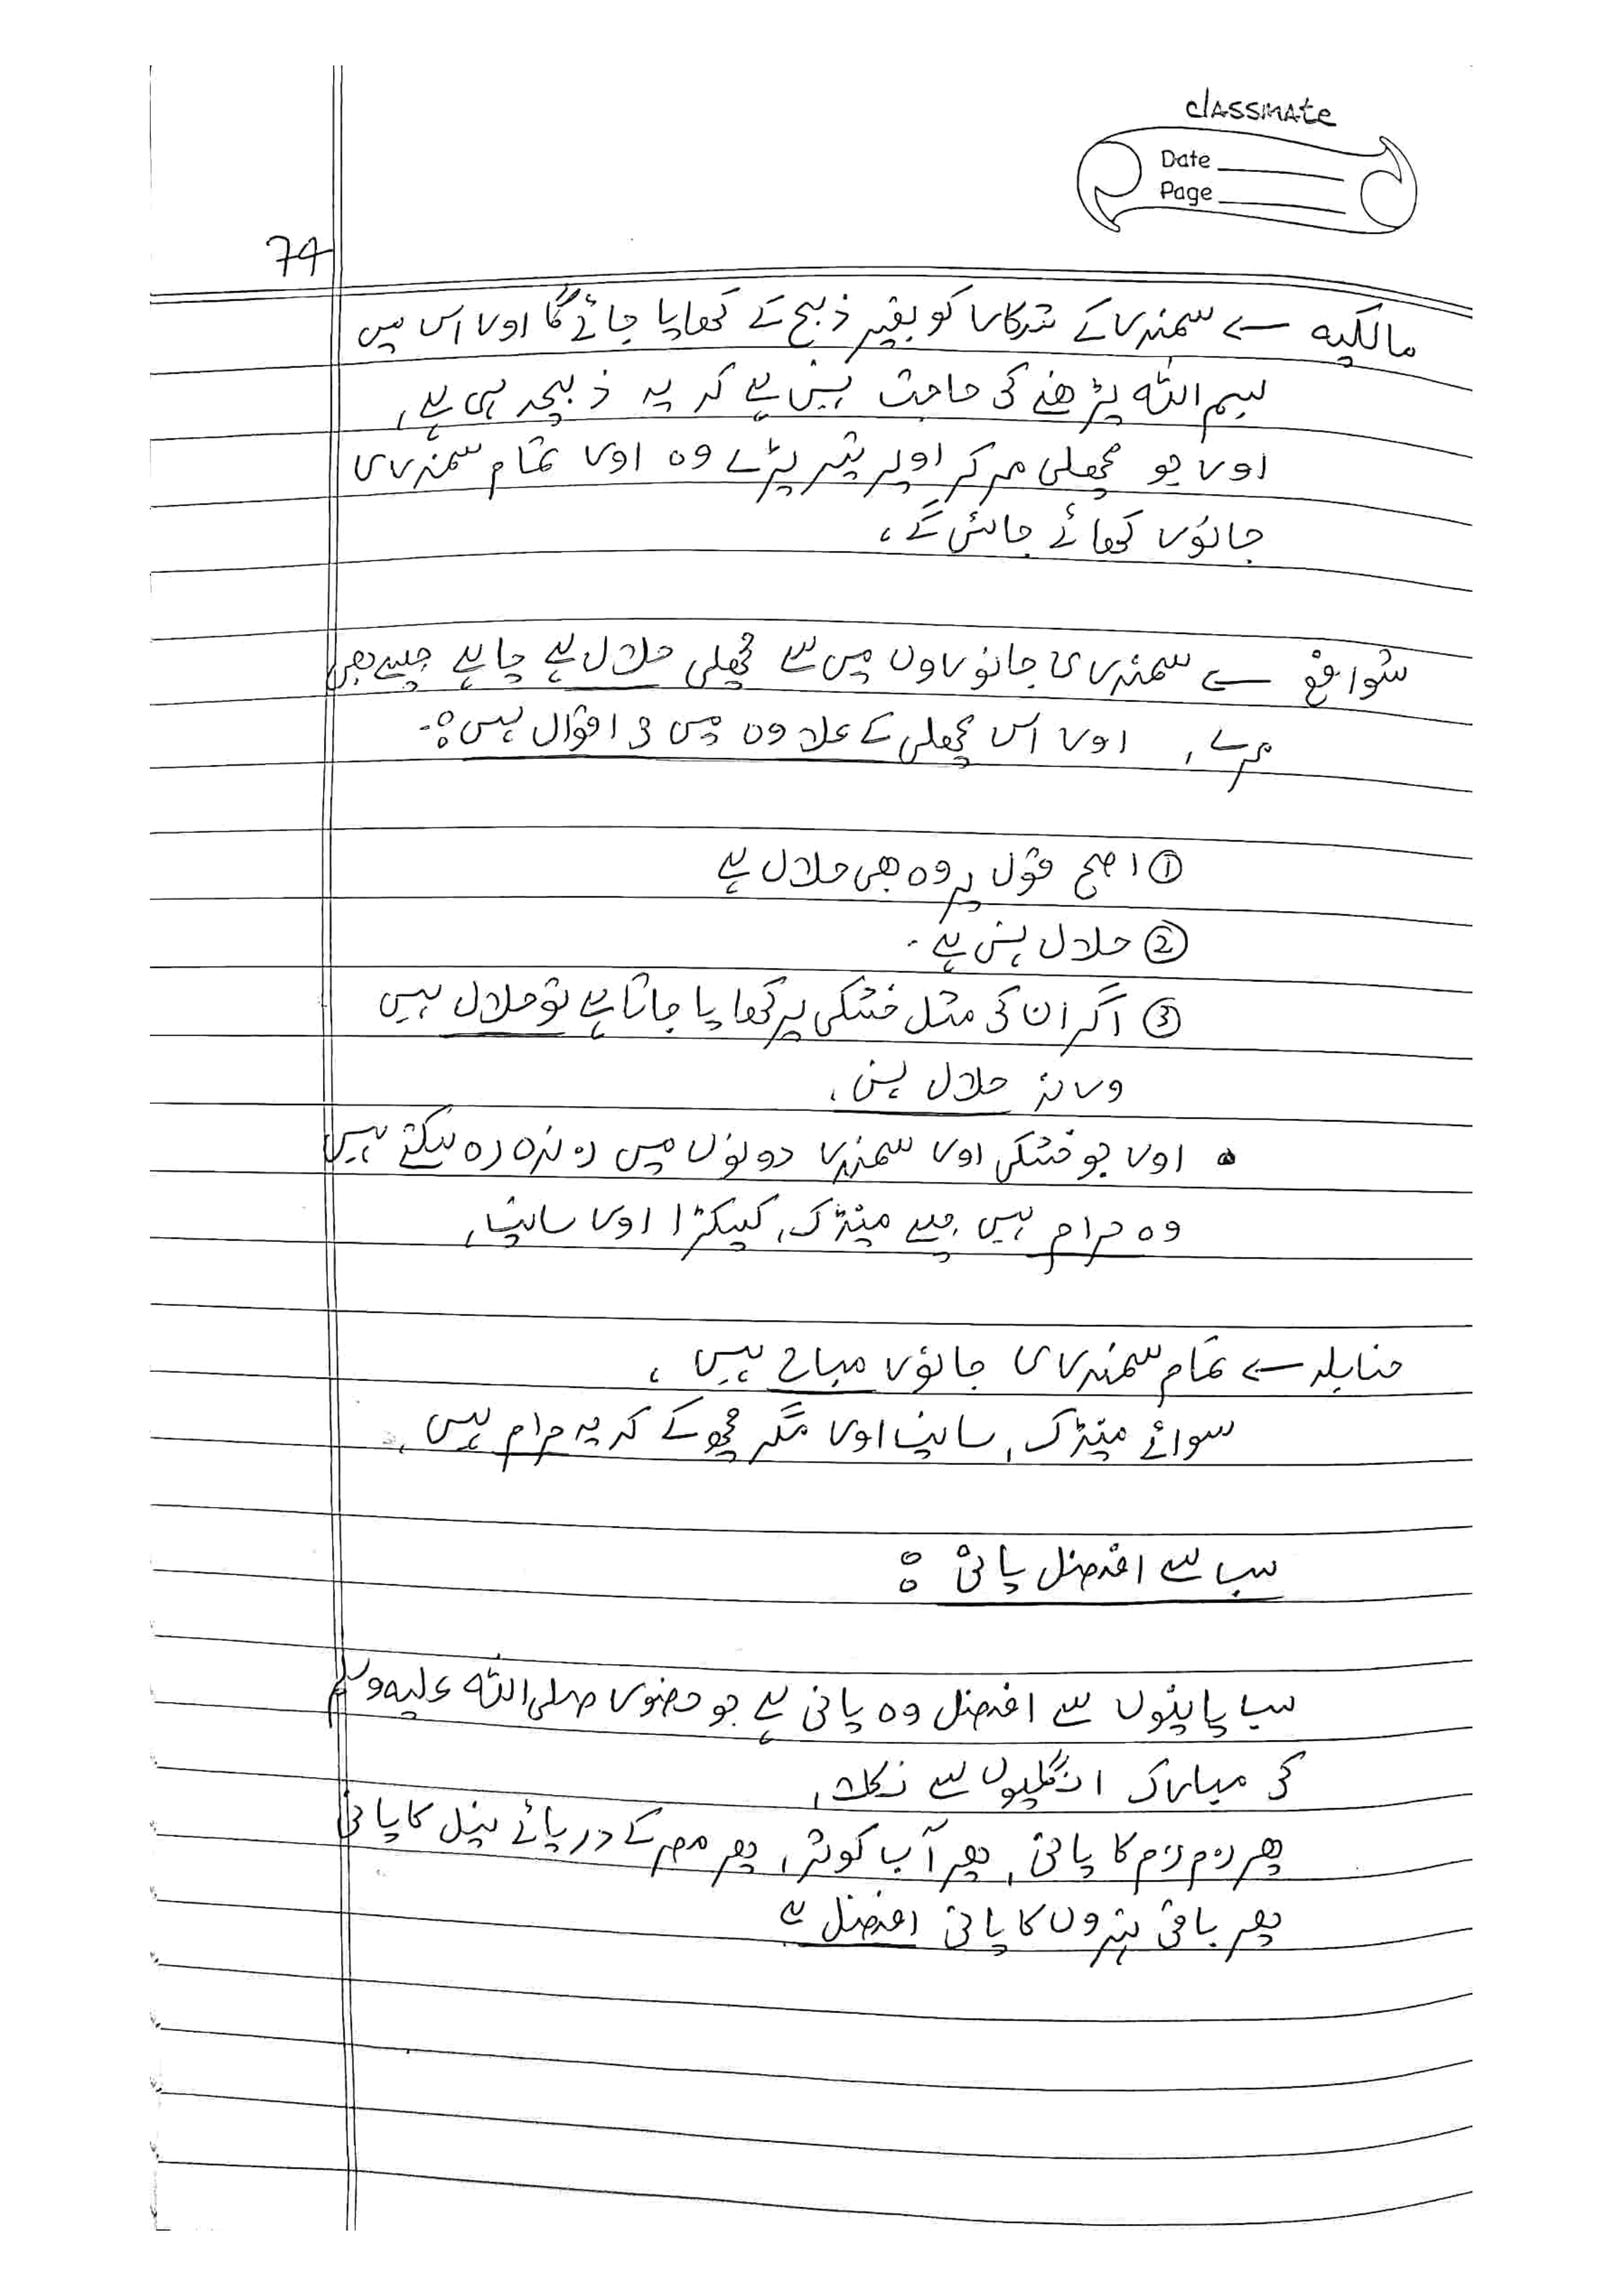 classmate
Date
Page
74
مالکیہ ← سمندر کے شکار کو بغیر ذبح کے کھایا جائے گا اور اس میں
بسم اللہ پڑھنے کی حاجت نہیں ہے کہ یہ ذبیحہ ہی ہے،
اور جو مچھلی مر کر اوپر تیر پڑے وہ اور تمام سمندری
جانور کھائے جائیں گے،
شوافع ← سمندری جانوروں میں سے مچھلی حلال ہے چاہے جیسے بھی
مرے، اور اس مچھلی کے علاوہ میں 3 اقوال ہیں:-
① اصح قول پر وہ بھی حلال ہے
② حلال نہیں ہے۔
③ اگر ان کی مثل خشکی پر کھایا جاتا ہے تو حلال ہیں
ورنہ حلال نہیں،
• اور جو خشکی اور سمندر دونوں میں زندہ رہ سکتے ہیں
وہ حرام ہیں جیسے مینڈک، کیکڑا اور سانپ،
حنابلہ ← تمام سمندری جانور مباح ہیں،
سوائے مینڈک، سانپ اور مگر مچھ کے کہ یہ حرام ہیں،
سب سے افضل پانی :
سب پانیوں سے افضل وہ پانی ہے جو حضور صلی اللہ علیہ وسلم
کی مبارک انگلیوں سے نکلا،
پھر زم زم کا پانی، پھر آب کوثر، پھر مصر کے دریائے نیل کا پانی
پھر باقی نہروں کا پانی افضل ہے